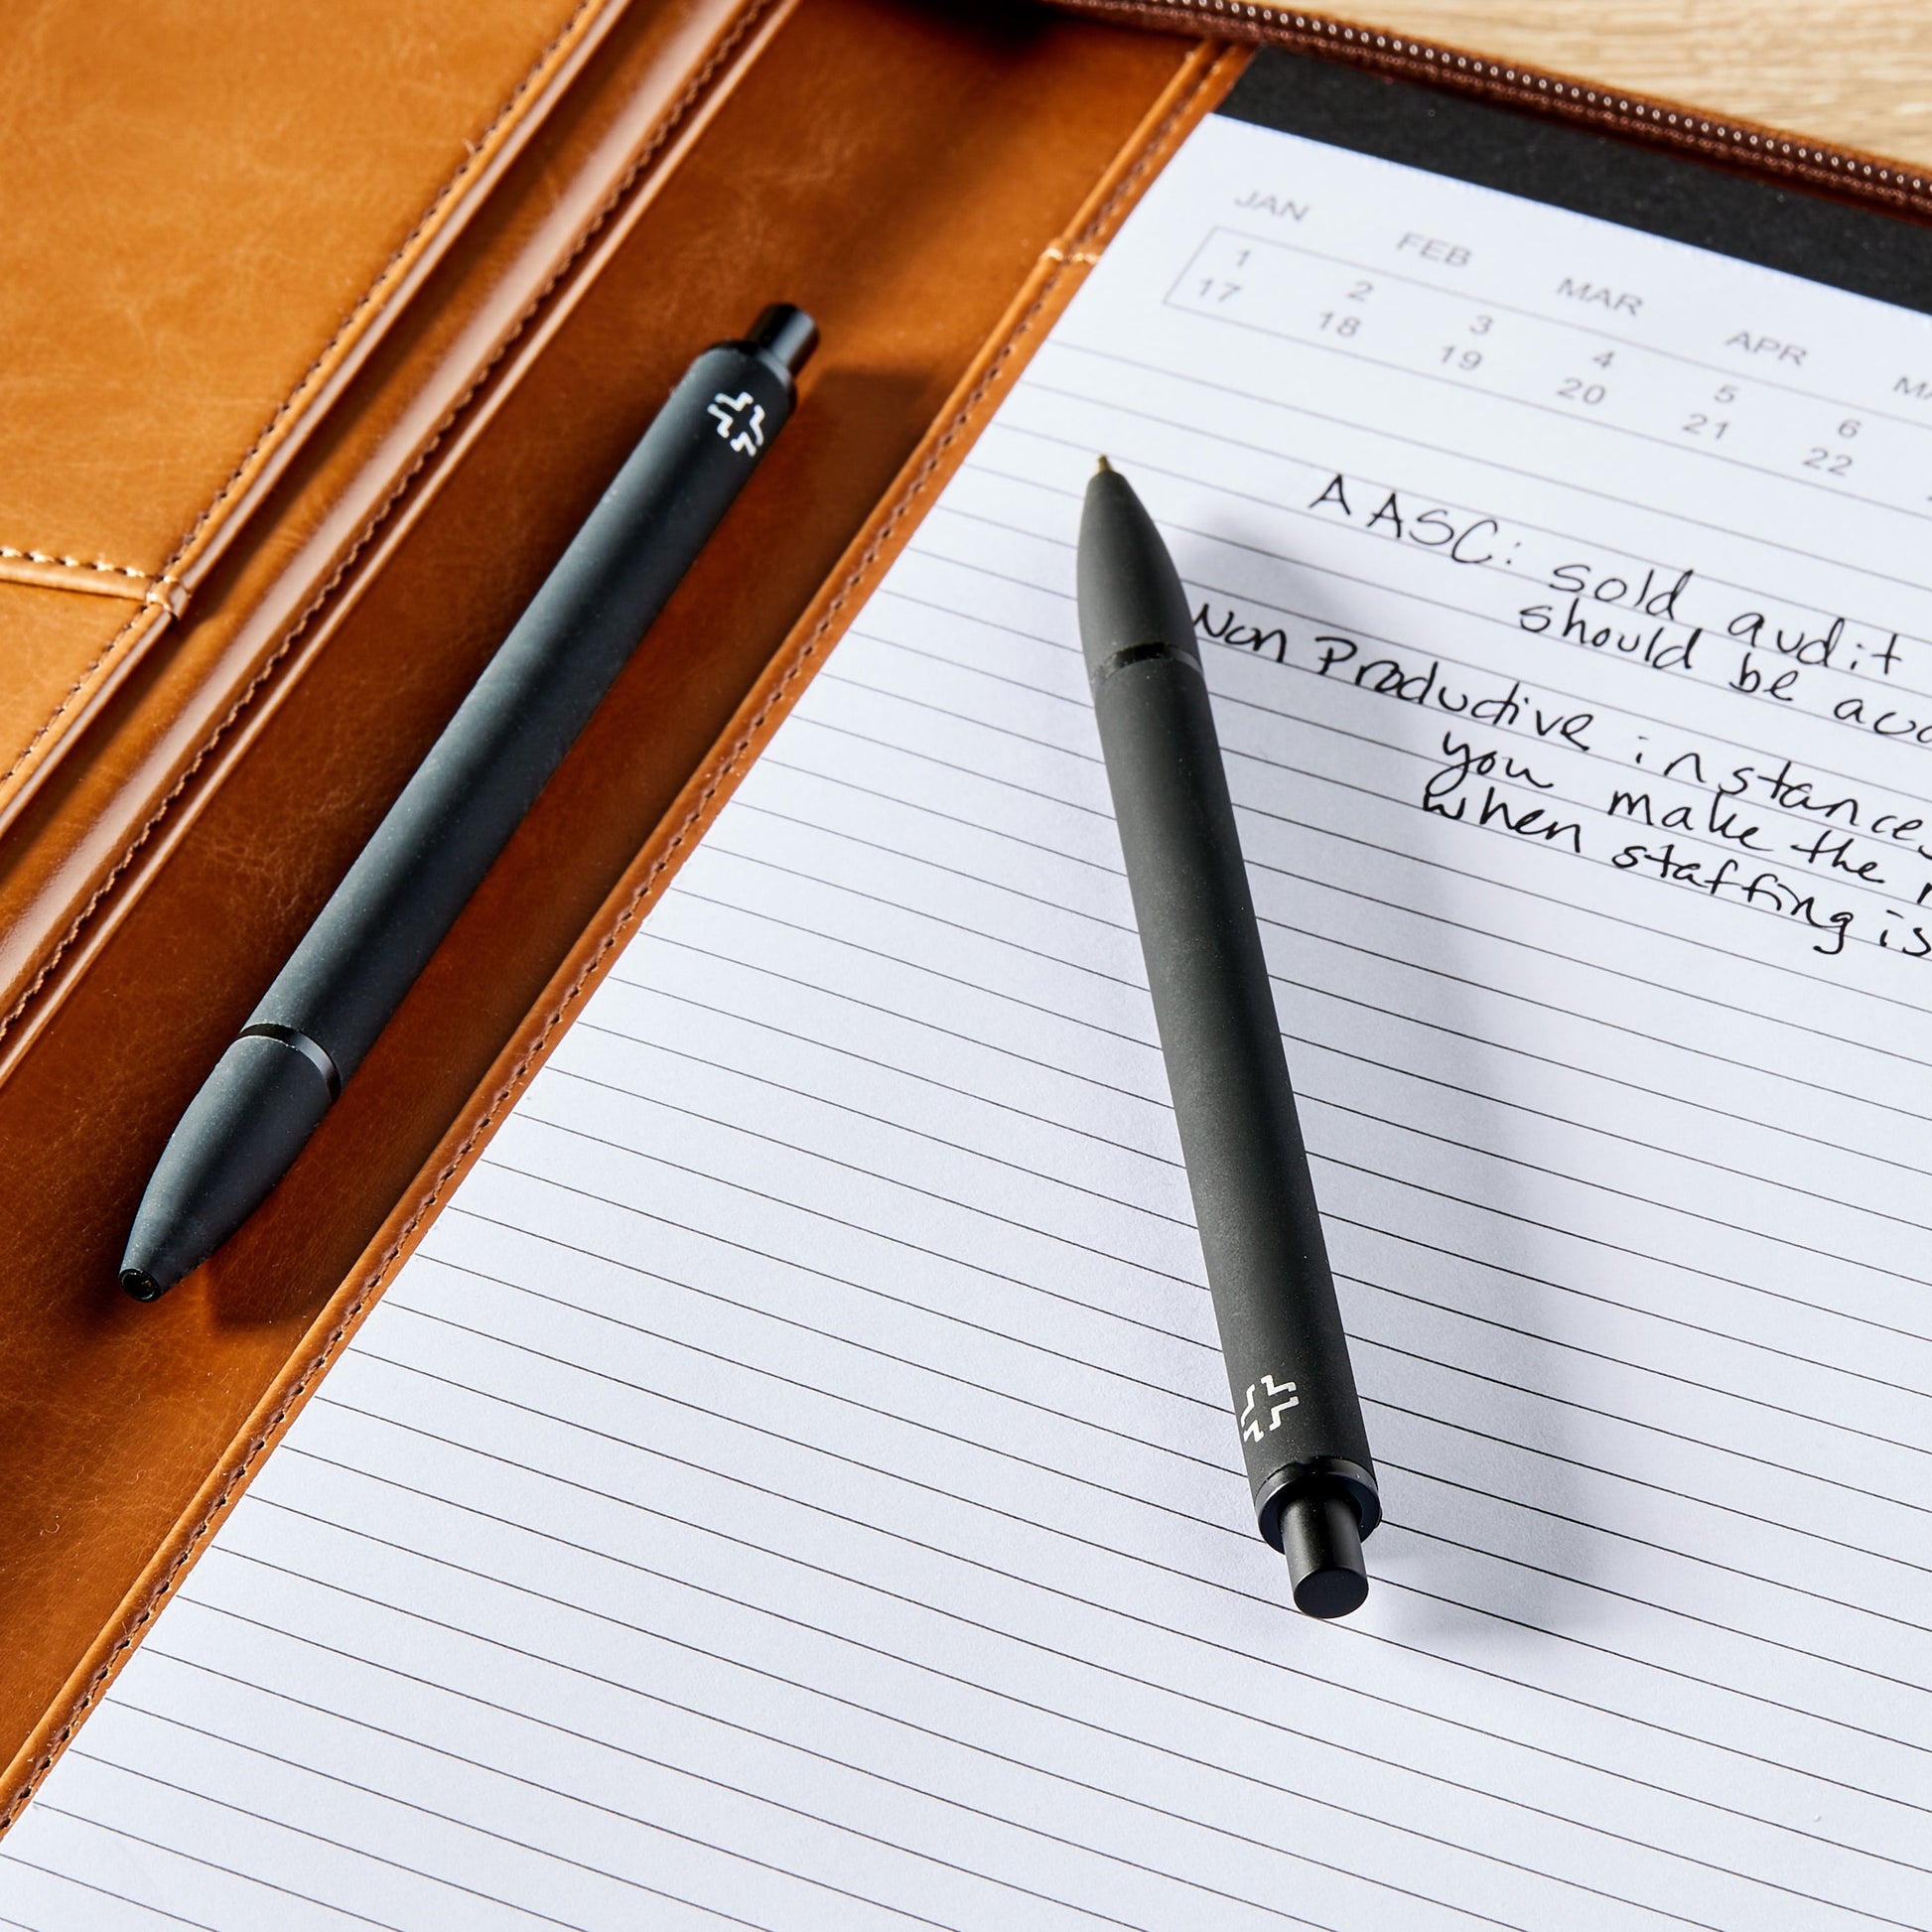 JAN FEB MAR APR
1 2 3 4 5 6
17 18 19 20 21 22
AASC: sold audit
should be
Non Productive instances
you make the
when staffing is